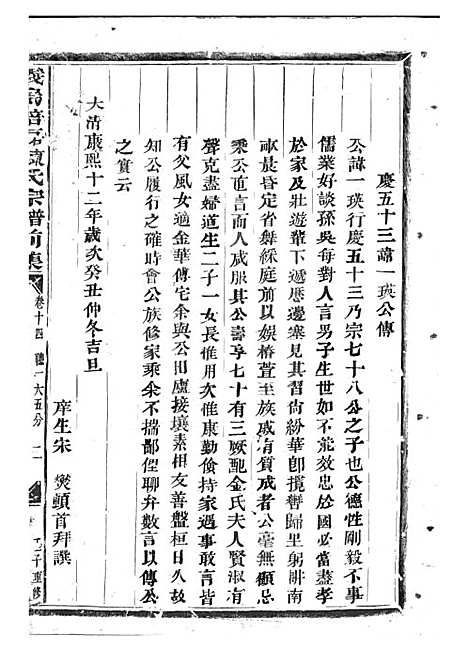 慶五十三諱一瑛公傳
公諱一瑛行慶五十三乃宗七十八公之子也公德性剛毅不事
儒業好談孫吳每對人言男子生世如不能效忠於國必當盡孝
於家及壯遊輦下遞歷邊塞見其習尚紛華卽攬轡歸里躬耕南
畝晨昏定省舞綵庭前以娛椿萱至族戚有質成者公毫無顧忌
秉公直言而人咸服其公壽享七十有三厥配金氏夫人賢淑有
聲克盡婦道生二子一女長惟用次惟康勤儉持家遇事敢言皆
有父風女適金華傅宅余與公田廬接壤素相友善盤桓日久故
知公履行之確時會公族修家乘余不揣鄙俚聊弁數言以傳公
之實云
大清康熙十二年歲次癸丑仲冬吉旦
庠生宋 燮頓首拜譔
氏宗譜前集 卷十四 聽一大五分 二
重修